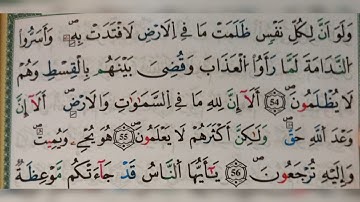 وَلَوْ اَنَّ لِكُلِّ نَفْسٍ ظَلَمَتْ مَا فِى الْاَرْضِ لَافْتَدَتْ بِهٖ ۗ وَاَسَرُّوا
النَّدَامَةَ لَمَّا رَاَوُا الْعَذَابَ وَقُضِىَ بَيْنَهُمْ بِالْقِسْطِ وَهُمْ
لَا يُظْلَمُوْنَ ٥٤ اَلَآ اِنَّ لِلّٰهِ مَا فِى السَّمٰوٰتِ وَالْاَرْضِ ۗ اَلَآ اِنَّ
وَعْدَ اللّٰهِ حَقٌّ وَّلٰكِنَّ اَكْثَرَهُمْ لَا يَعْلَمُوْنَ ٥٥ هُوَ يُحْيٖ وَيُمِيْتُ
وَاِلَيْهِ تُرْجَعُوْنَ ٥٦ يٰٓاَيُّهَا النَّاسُ قَدْ جَآءَتْكُمْ مَّوْعِظَةٌ